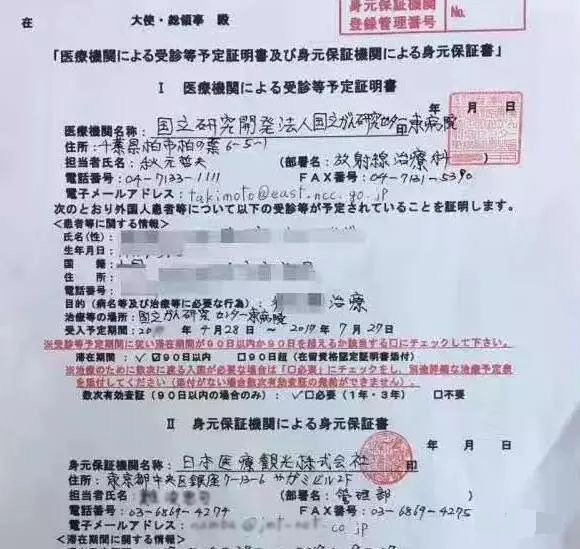 身元保証機関
登録管理番号 No.
在 大使・総領事 殿
「医療機関による受診等予定証明書及び身元保証機関による身元保証書」
Ⅰ 医療機関による受診等予定証明書
年 月 日
医療機関名称：国立研究開発法人国立がん研究センター東病院
住所：千葉県柏市柏の葉6-5-1
担当者氏名：秋元哲夫 （部署名：放射線治療科）
電話番号：04-7133-1111 FAX番号：04-7131-5390
電子メールアドレス：takimoto@east.ncc.go.jp
次のとおり外国人患者等について以下の受診等が予定されていることを証明します。
＜患者等に関する情報＞
氏名(性)：
生年月日：
国 籍：
住 所：
電話番号：
目的（病名等及び治療等に必要な行為）： 治療
治療等の場所：国立がん研究センター東病院
受入予定期間： 4月28日 ～ 2017年7月27日
※受診等予定期間に従い滞在期間が９０日以内か９０日を超えるか該当する口にチェックして下さい。
滞在期間：✓☑９０日以内 □９０日超（在留資格認定証明書添付）
※治療のために数次に渡る入国が必要な場合は「口必要」にチェックをし、別途詳細な治療予定表
を添付してください（添付がない場合数次有効査証の発給ができません）。
数次有効査証（９０日以内の場合のみ）：✓□必要（１年・３年） □不要
Ⅱ 身元保証機関による身元保証書
年 月 日
身元保証機関名称：日本医療観光株式会社 印
住所：東京都中央区銀座7-13-6 サガミビル2F
担当者氏名： （部署名：管理部
電話番号：03-6869-4274 FAX番号：03-6869-4275
電子メールアドレス： @jmt-net.co.jp
＜患者等に関する情報＞